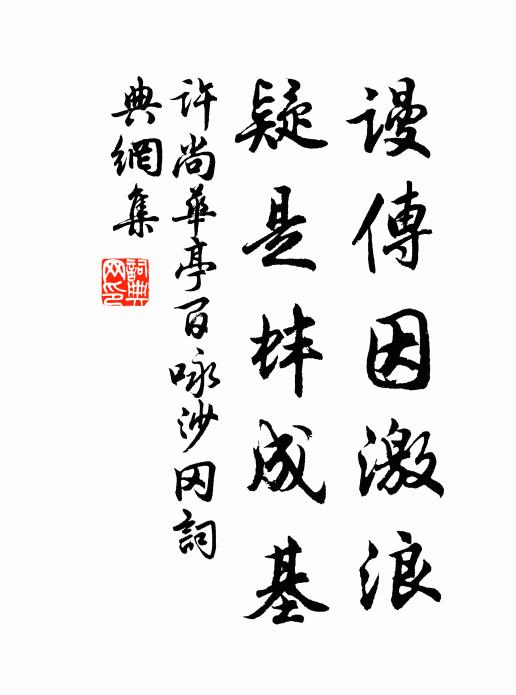 謾傳因激浪
疑是蚌成基
許尚華亭百咏沙冈詞
典網集
詞典
网印